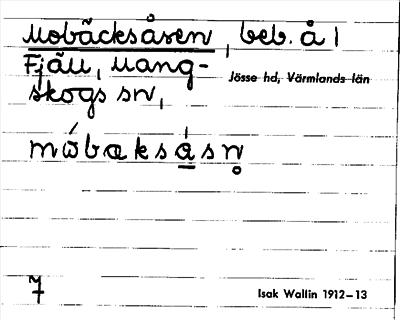 Mobäcksåsen, beb. å
Fjäll, Mang-
Jösse hd, Värmlands län
skogs sn,
mώbæksá̲sn̥
7
Isak Wallin 1912–13